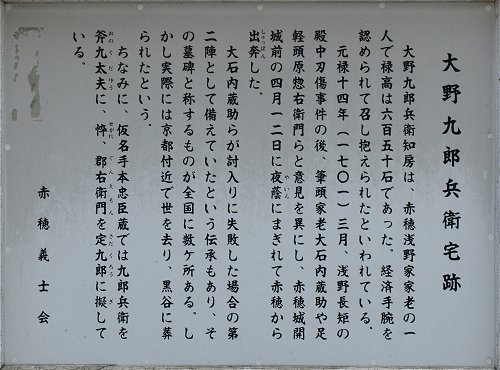 大野九郎兵衛宅跡
大野九郎兵衛知房は、赤穂浅野家家老の一
人で禄高は六百五十石であった。経済手腕を
認められて召し抱えられたといわれている。
元禄十四年（一七〇一）三月、浅野長矩の
殿中刃傷事件の後、筆頭家老大石内蔵助や足
軽頭原惣右衛門らと意見を異にし、赤穂城開
城前の四月一二日に夜蔭にまぎれて赤穂から
出奔した。
大石内蔵助らが討入りに失敗した場合の第
二陣として備えていたという伝承もあり、そ
の墓碑と称するものが全国に数ケ所ある。し
かし実際には京都付近で世を去り、黒谷に葬
られたという。
ちなみに、仮名手本忠臣蔵では九郎兵衛を
斧九太夫に、悴、郡右衛門を定九郎に擬して
いる。
赤穂義士会